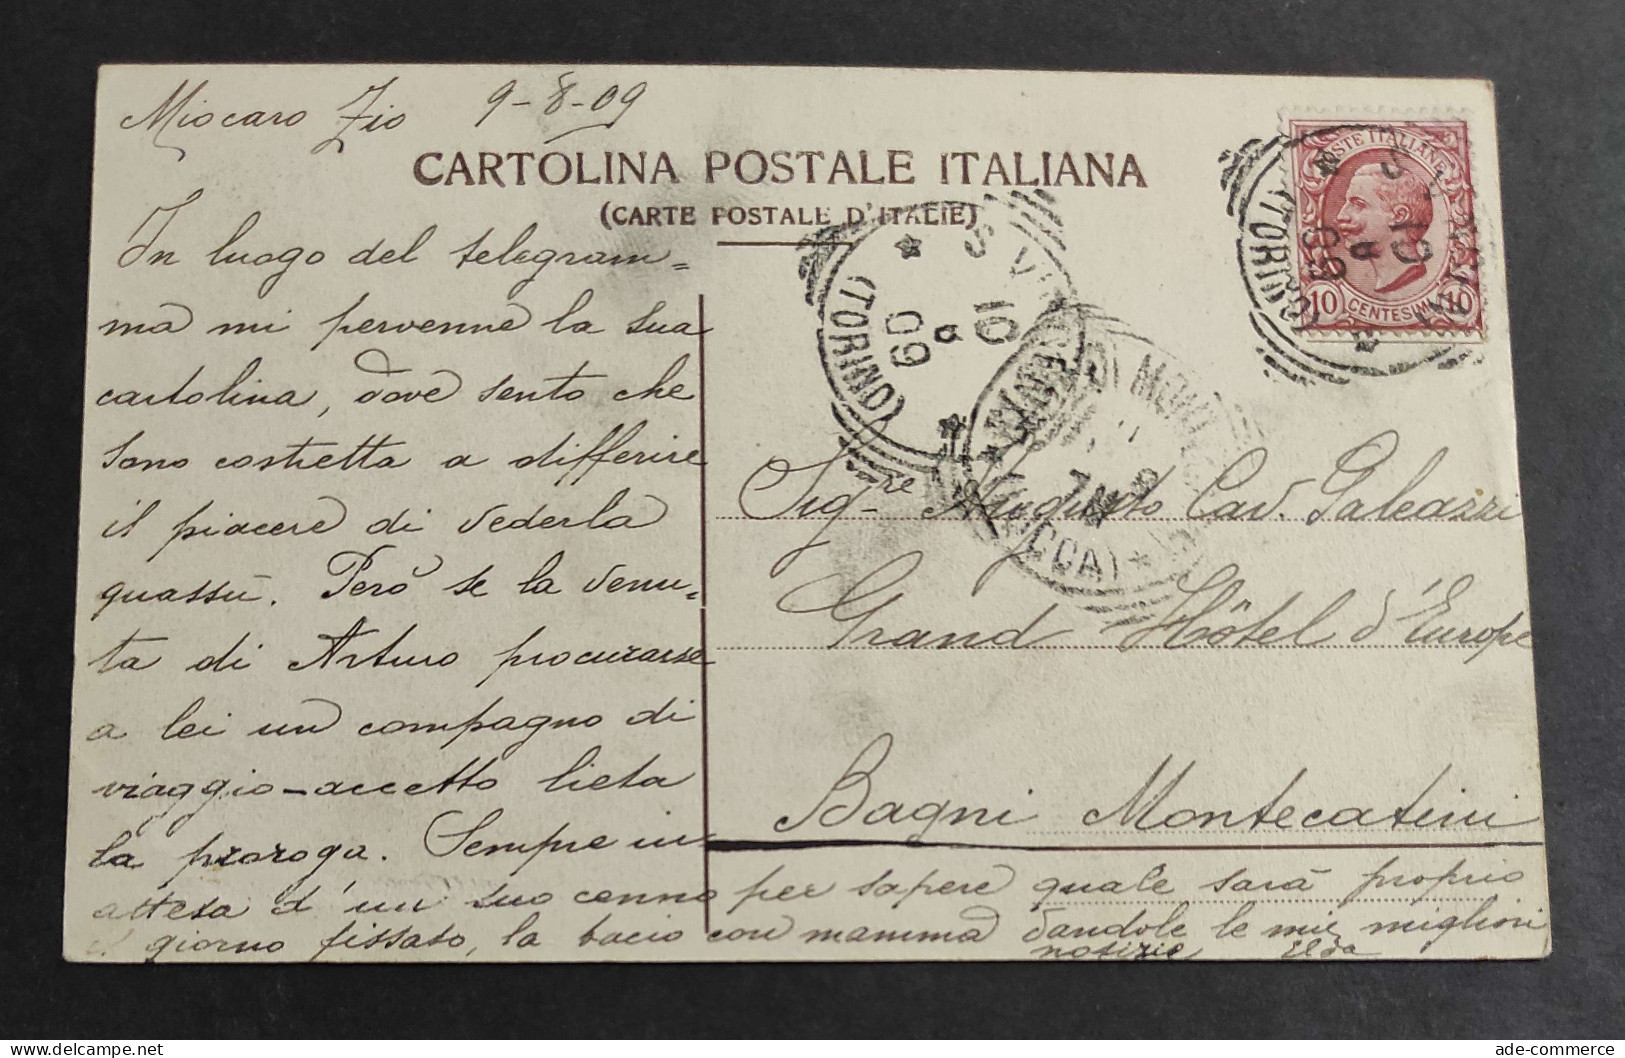 Mio caro Zio 9-8-09
CARTOLINA POSTALE ITALIANA
(CARTE POSTALE D'ITALIE)
In luogo del telegram=
ma mi pervenne la sua
cartolina, dove sento che
sono costretta a differire
il piacere di vederla
quassù. Però se la venu-
ta di Arturo procurarse
a lei un compagno di
viaggio-accetto lieta
la proroga. Sempre in
attesa d'un suo cenno per sapere quale sarà proprio
il giorno fissato, la bacio con mamma dandole le mie migliori
notizie Elda
POSTE ITALIANE
10 CENTESIMI 10
(TORINO)
09
10
(TORINO)
09
10
Sigre Augusto Cav. Galeazzi
Grand Hôtel d'Europe
Bagni Montecatini
ade-commerce